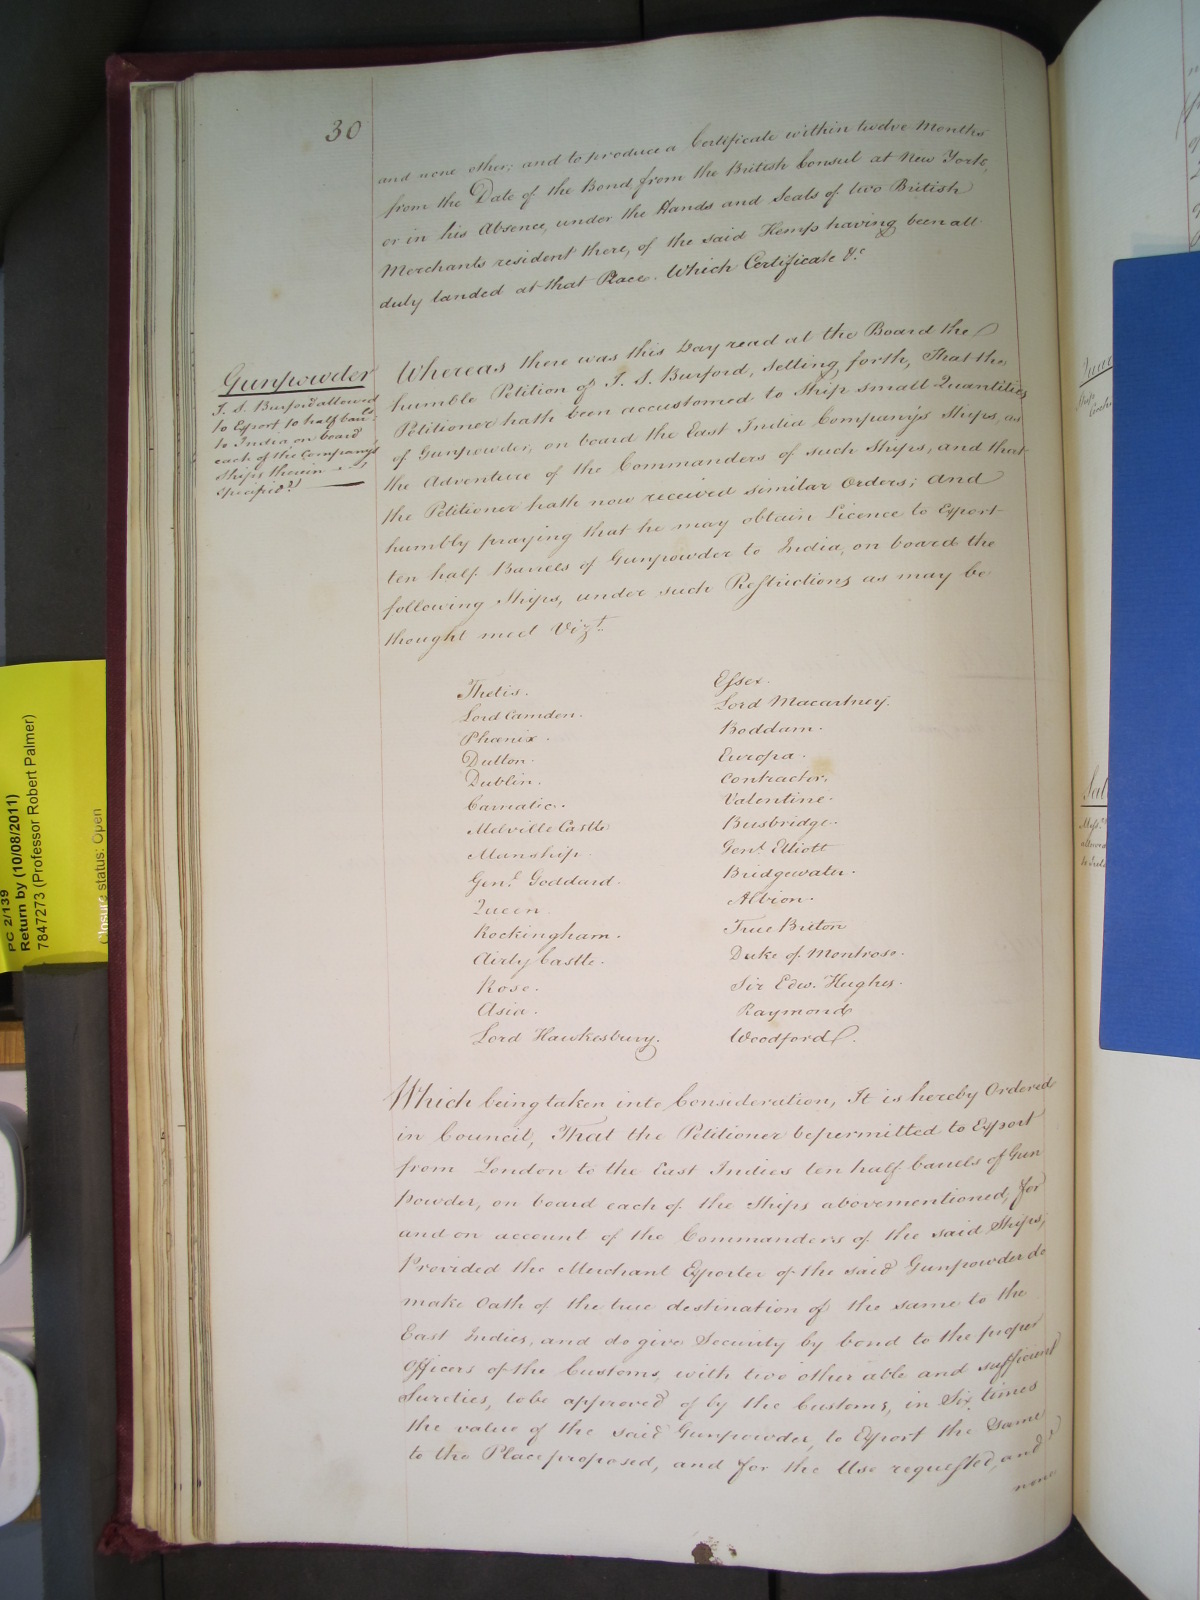 30
and none other; and to produce a Certificate within twelve Months
from the Date of the Bond from the British Consul at New York,
or in his Absence, under the Hands and Seals of two British
Merchants resident there, of the said Hemp having been all
duly landed at that Place. Which Certificate &c
Gunpowder
T. S. Burford allowed
to Export 10 half barls:
to India, on board
each of the Company's
Ships therein
specified.
Whereas there was this Day read at the Board the
humble Petition of T. S. Burford, setting forth, That the
Petitioner hath been accustomed to Ship small Quantities
of Gunpowder, on board the East India Company's Ships, as
the Adventure of the Commanders of such Ships, and that
the Petitioner hath now received similar Orders; and
humbly praying that he may obtain Licence to Export
ten half Barrels of Gunpowder to India, on board the
following Ships, under such Restrictions as may be
thought meet Vizt.
Thetis.
Lord Camden.
Phœnix.
Dutton.
Dublin.
Carnatic.
Melville Castle
Manship.
Genl. Goddard.
Queen.
Rockingham.
Airly Castle.
Rose.
Asia.
Lord Hawkesbury.
Essex.
Lord Macartney.
Boddam.
Europa.
Contractor.
Valentine.
Busbridge.
Genl. Elliott
Bridgewater.
Albion.
True Briton
Duke of Montrose.
Sir Edw. Hughes.
Raymond
Woodford.
Which being taken into Consideration, It is hereby Ordered
in Council, That the Petitioner be permitted to Export
from London to the East Indies ten half barrels of Gun
powder, on board each of the Ships abovementioned, for
and on account of the Commanders of the said Ships;
Provided the Merchant Exporter of the said Gunpowder do
make Oath of the true destination of the same to the
East Indies, and do give Security by bond to the proper
Officers of the Customs, with two other able and sufficient
Sureties, to be approved of by the Customs, in Six times
the value of the said Gunpowder, to Export the Same
to the Place proposed, and for the Use requested, and
none
PC 2/139
Return by (10/08/2011)
7847273 (Professor Robert Palmer)
Closure status: Open
Sal